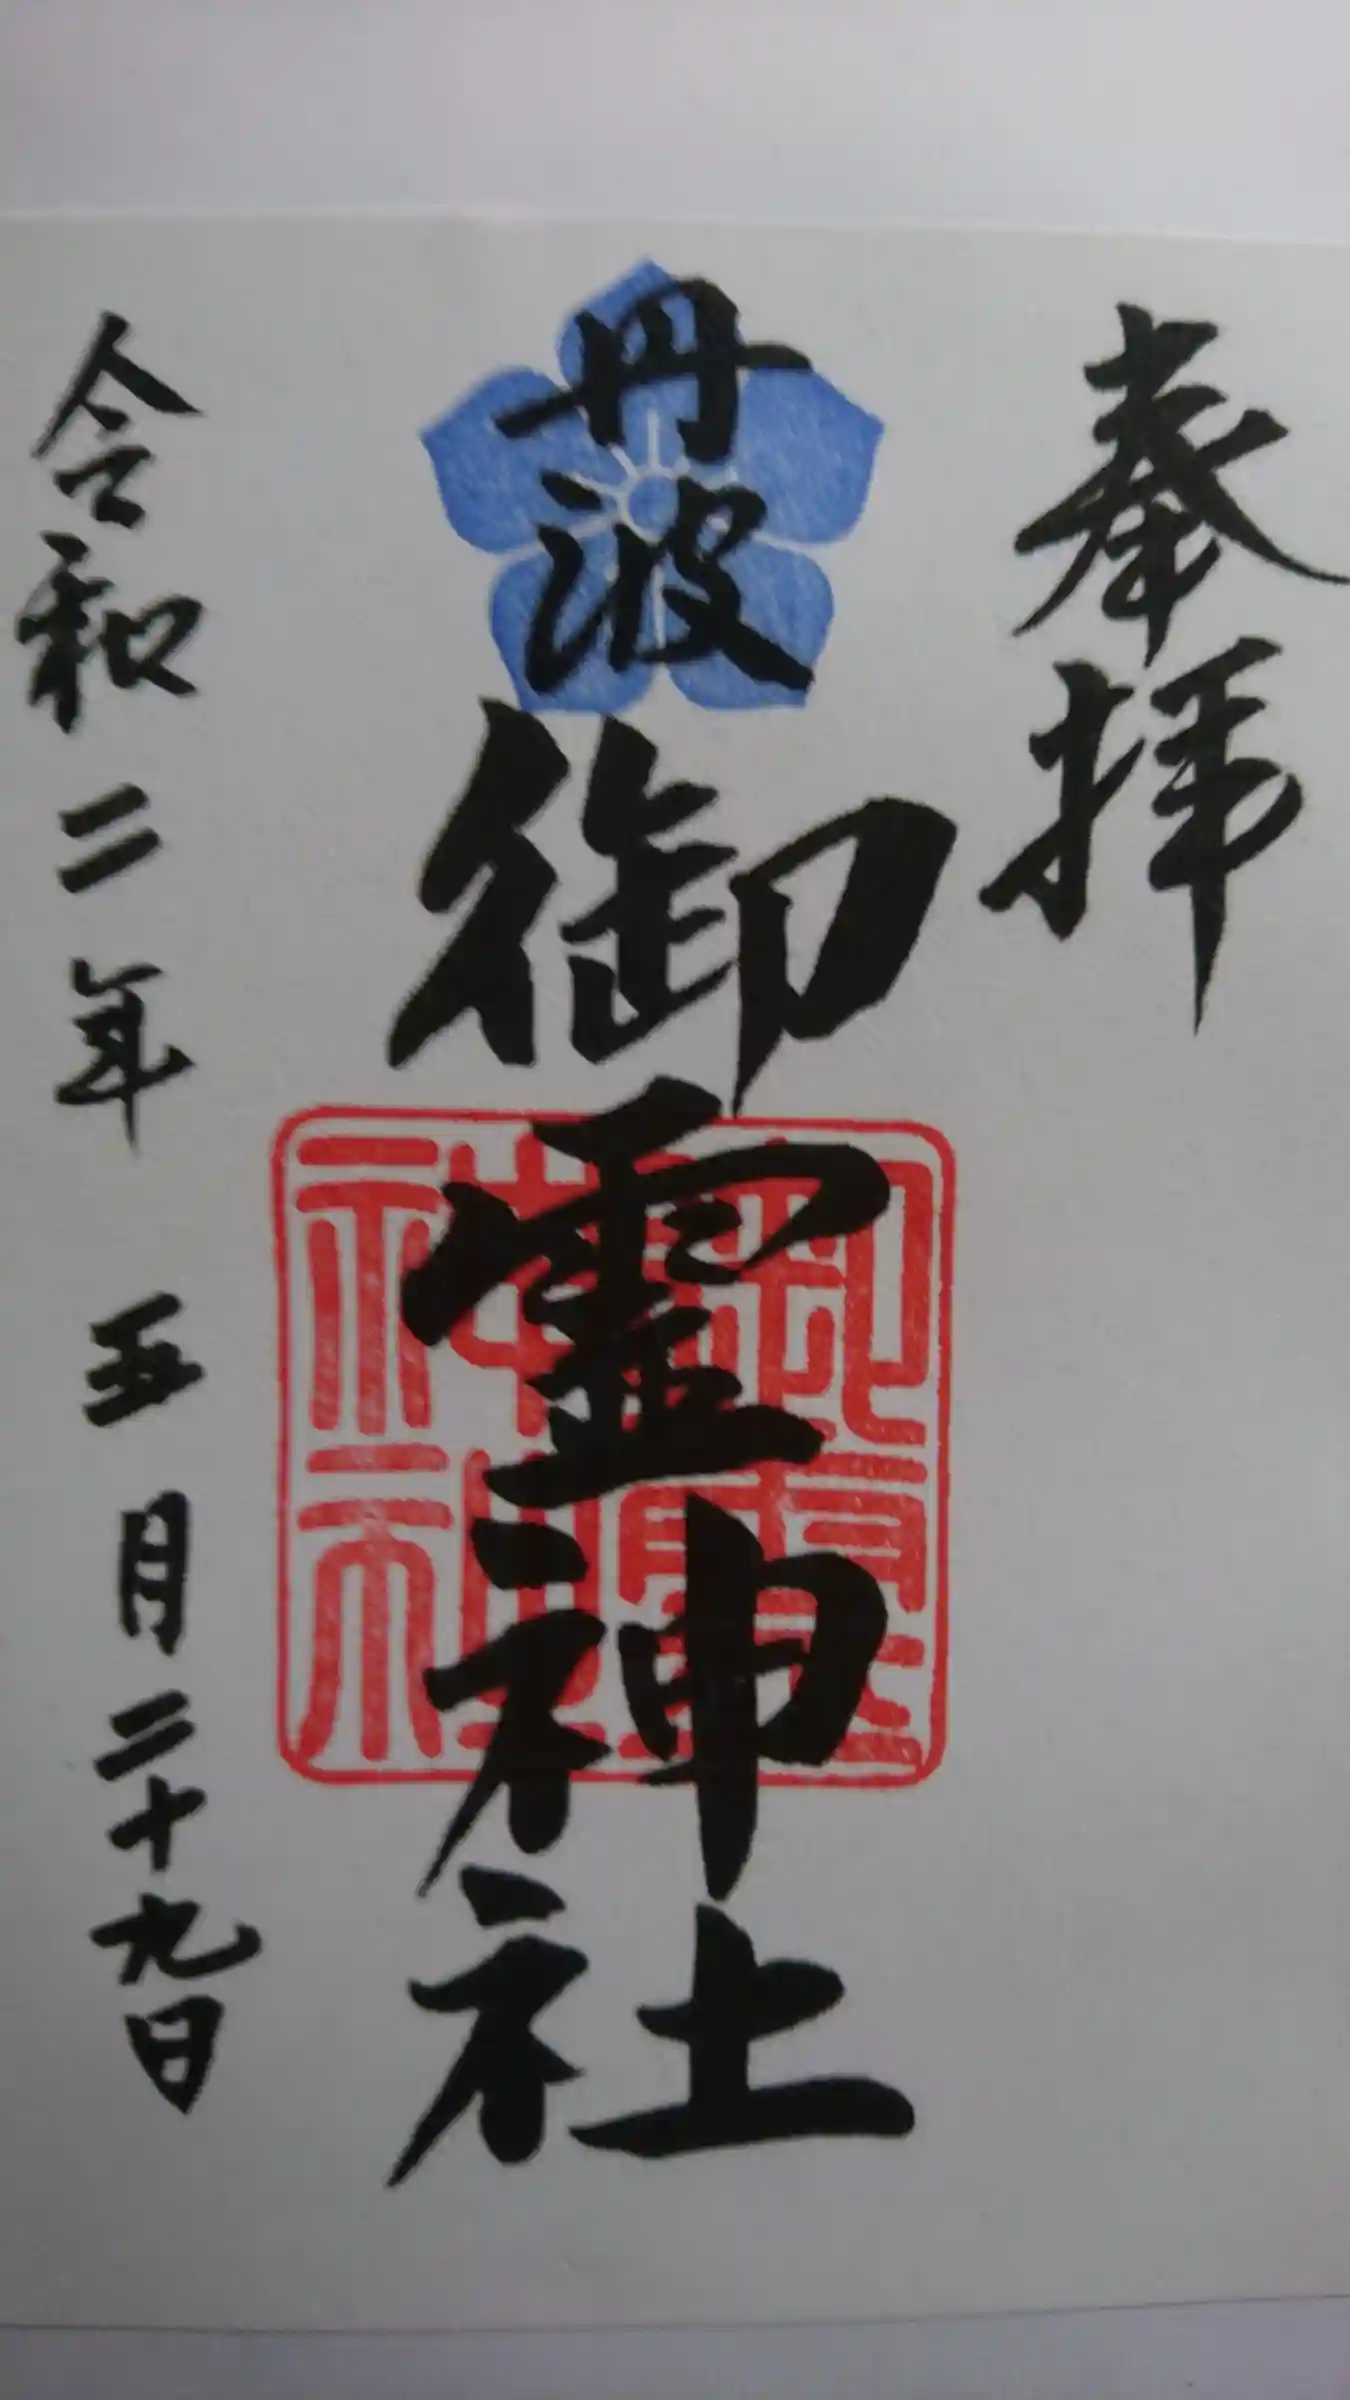 奉拝
丹波御霊神社
御霊神社
令和二年五月二十九日